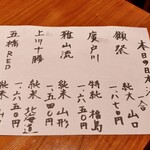 本日の日本酒 一合
獺祭 純大 山口 一六七〇円
廣戸川 特純 福島 一六五〇円
雅山流 純米 山形 一五四〇円
上川十勝 純米 北海道 一六五〇円
五橋RED 純米 山口 一六五〇円